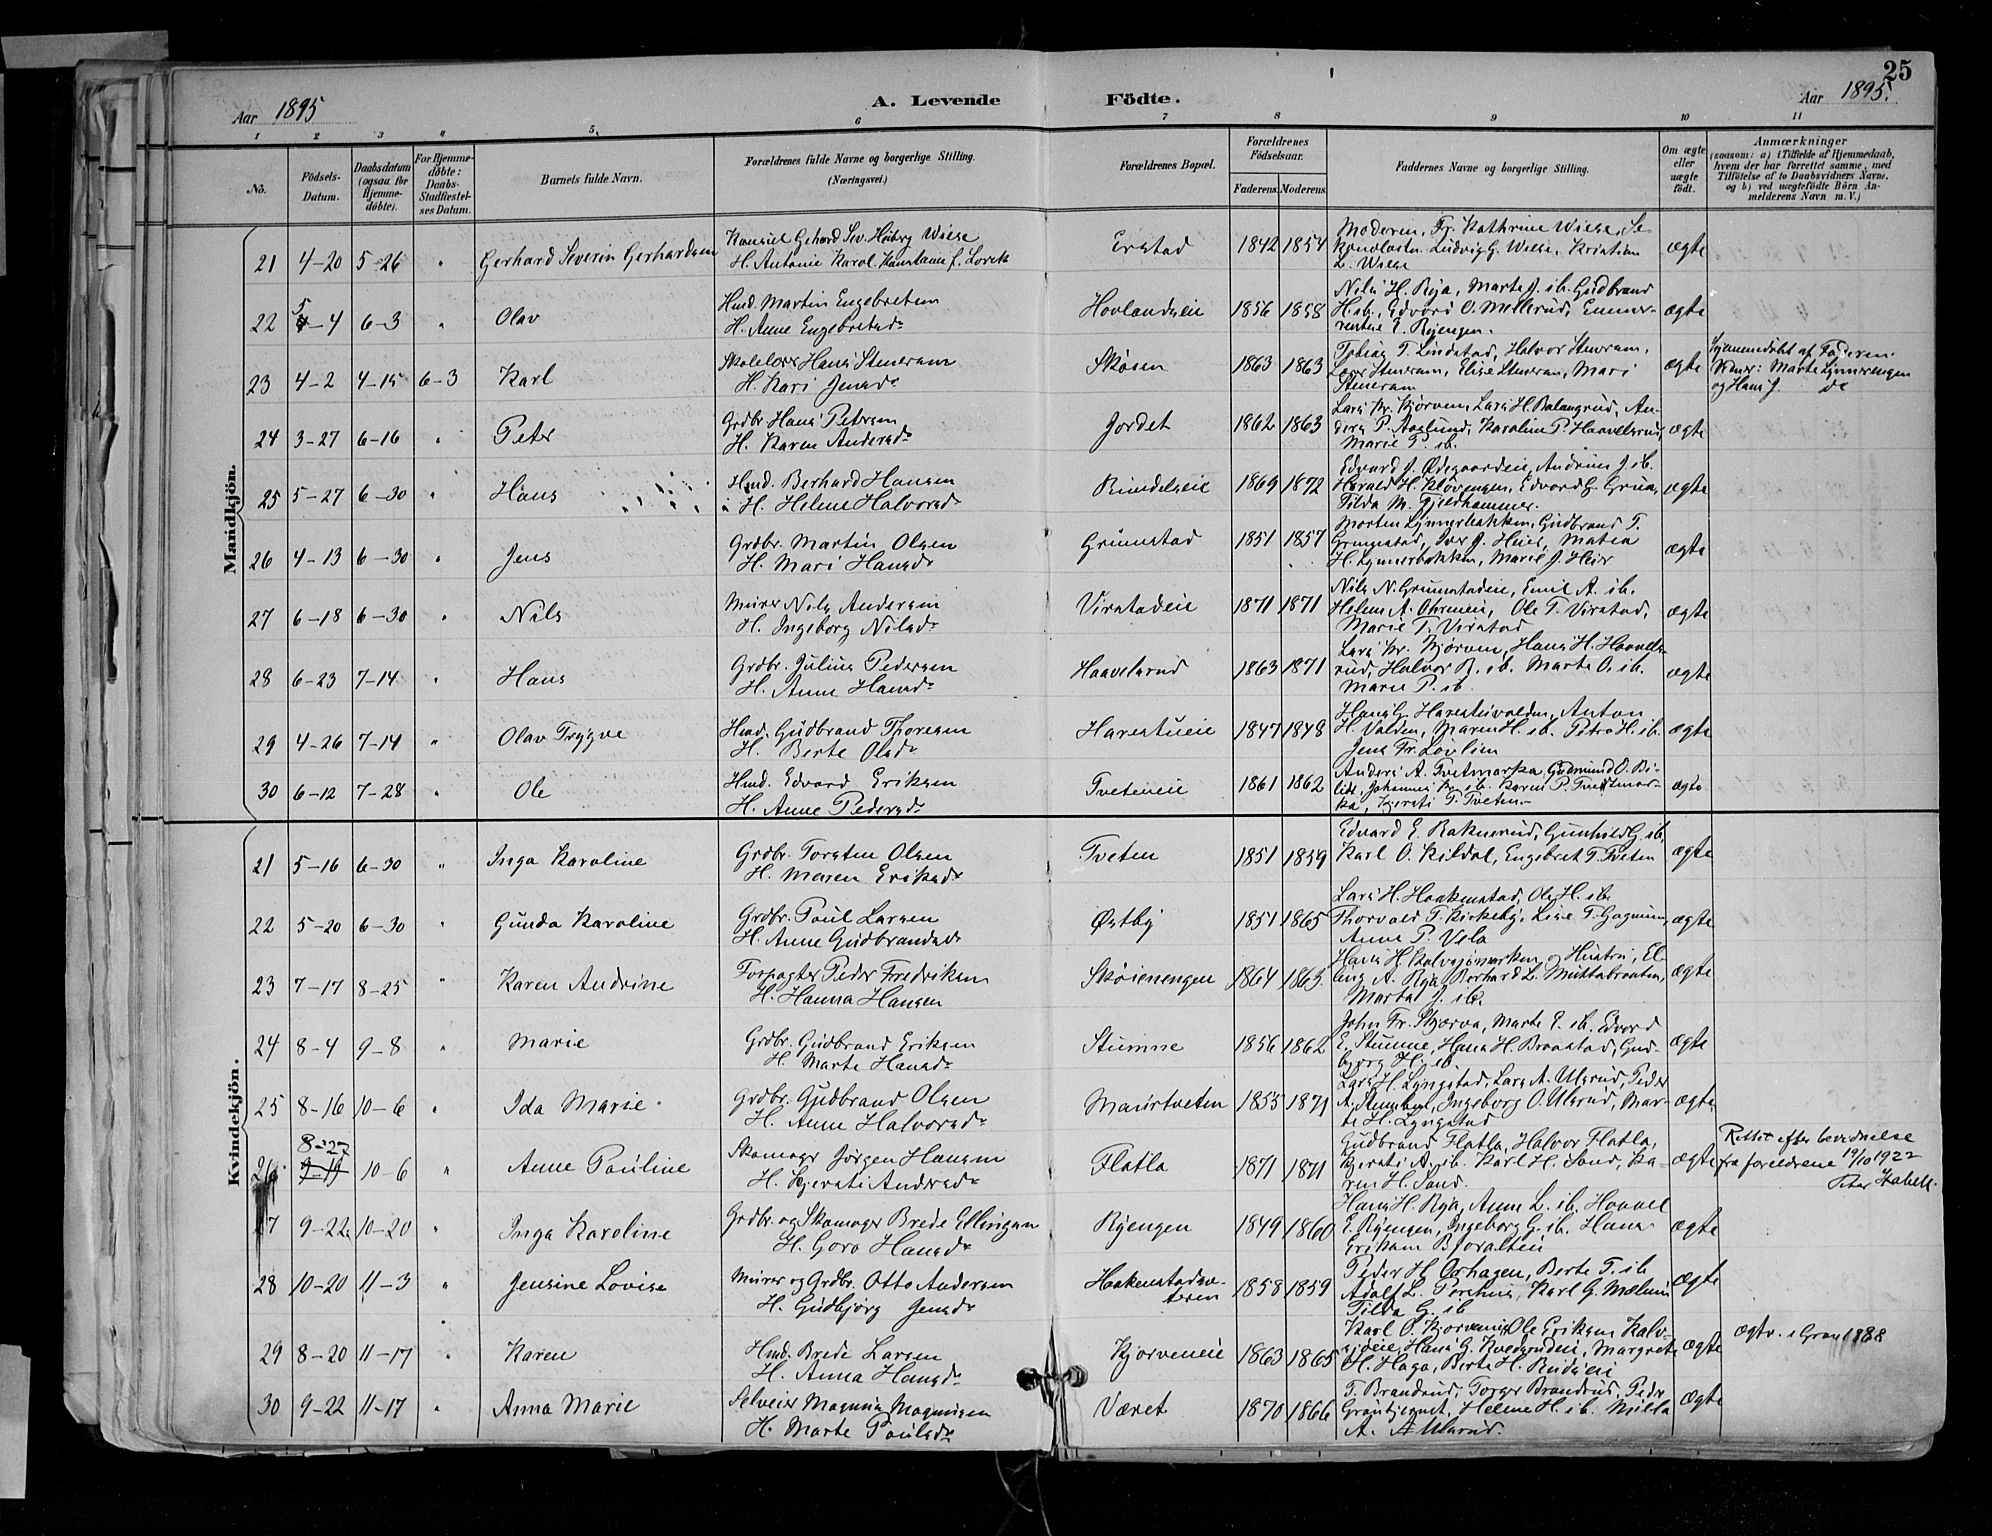 25
Aar 1895
A. Levende Födte.
Aar 1895.
1 2 3 4 5. 6 7 8 9 10 11
No.
Födsels-Datum.
Daabsdatum (ogsaa for Hjemme-döbte).
For Hjemme-döbte: Daabs-Stadfæstel-ses Datum.
Barnets fulde Navn.
Forældrenes fulde Navne og borgerlige Stilling.
(Næringsvei.)
Forældrenes Bopæl.
Forældrenes Födselsaar.
Faderens. Moderens.
Faddernes Navne og borgerlige Stilling.
Om ægte eller uægte födt.
Anmærkninger
(saasom: a) i Tilfælde af Hjemmedaab, hvem der har forrettet samme, med Tilföielse af to Daabsvidners Navne, og b) ved uægtefödte Börn An-melderens Navn m. V.)
Mandkjön.
21 4-20 5-26 " Gerhard Severin Gerhardsen
Konsul Gerhard Sev. Heiberg Wiese
Erstad 1842 1854
Moderen, Fr. Kathrine Wiese, Se-
ægte
22 5-4 6-3 " Olav
Hmd. Martin Engebretsen
H. Anne Engebretsd.
Hovlandseie 1856 1858
Nils H. Rya, Marte J. ib. Gudbrand
H. ib., Edvard O. Mellerud, Emmer-
rentse E. Ryengen.
ægte
23 4-2 4-15 6-3 Karl
Skolelærer Hans Stenersen
H. Kari Jensd.
Skøien 1863 1863
Tobias T. Lindstad, Halvor Stenersen,
Lars Stenersen, Elise Stenersen, Mari
Stenersen
ægte
Hjemmedøbt af Faderen.
Vidner: Marte Lynnerengen
og Hans J. do
24 3-27 6-16 " Peter
Grdbr. Hans Petersen
H. Karen Andersd.
Jordet 1862 1863
Lars Kr. Kjørven, Lars H. Balangrud, An-
ders P. Aaslund, Karoline P. Haavelsrud,
Marie P. ib.
ægte
25 5-27 6-30 " Hans
Hmd. Berhard Hansen
H. Helene Halvorsd.
Rundelseie 1869 1872
Edvard J. Ødegaardeie, Andrine J. ib.
Harald H. Kløvengen, Edvard G. Grua,
Tilda M. Fjeldhammer.
ægte
26 4-13 6-30 " Jens
Grdbr. Martin Olsen
H. Mari Hansd.
Grinnstad 1851 1857
Morten Lynnerbakken, Gudbrand T.
H. Lynnerbakken, Marie J. Heir
ægte
27 6-18 6-30 " Nils
Murer Nils Andersen
H. Ingeborg Nilsd.
Virstadeie 1871 1871
Nils N. Grinnstadeie, Emil A. ib.
Helene A. Ohreneie, Ole T. Virstad,
Marie T. Virstad
ægte
28 6-23 7-14 " Hans
Grdbr. Julius Pedersen
H. Anne Hansd.
Haavelsrud 1863 1871
Lars Kr. Kjørven, Hans H. Haavels-
rud, Halvor R. ib. Marte O. ib.
Marie P. ib.
ægte
29 4-26 7-14 " Olav Trygve
Hmd. Gudbrand Thoresen
H. Berte Olsd.
Harestueie 1847 1848
Hans G. Harestuvolden, Anton
H. Volden, Maren H. ib. Petra H. ib.
Jens Fr. Løvlien
ægte
30 6-12 7-28 " Ole
Hmd. Edvard Eriksen
H. Anne Pedersd.
Tveteneie 1861 1862
Anders A. Tvetmarka, Gudmund O. Bi-
lidt, Johannes Kr. ib. Karen P. Tvetmar-
ka, Kjersti T. Tveten.
ægte
Kvindekjön.
21 5-16 6-30 " Inga Karoline
Grdbr. Torsten Olsen
H. Maren Eriksd.
Tveten 1851 1859
Edvard E. Raknerud, Gunhild G. ib.
Karl O. Kildal, Engebret T. Tveten
ægte
22 5-20 6-30 " Gunda Karoline
Grdbr. Poul Larsen
H. Anne Gudbrandsd.
Østby 1851 1865
Lars H. Haakenstad, Ole H. ib.
Thorvald T. Kirkeby, Lise T. Gagnum,
Anne P. Velo
ægte
23 7-17 8-25 " Karen Andrine
Forpagter Peder Fredriksen
H. Hanna Hansen
Skøienengen 1864 1865
Hans H. Kalvsjømarken og Hustru, El-
ling A. Rya, Berhard L. Muttabraaten,
Marta J. ib.
ægte
24 8-4 9-8 " Marie
Grdbr. Gudbrand Eriksen
H. Marte Hansd.
Stumne 1856 1862
John Fr. Skjerva, Marte E. ib. Edvard
E. Stumne, Hans H. Braastad, Gud-
bjørg H. ib.
ægte
25 8-16 10-6 " Ida Marie
Grdbr. Gudbrand Olsen
H. Anne Halvorsd.
Maurtveten 1855 1871
Lars H. Lyngstad, Lars A. Ulsrud, Peder
te H. Lyngstad
ægte
26 8-27 9-19 10-6 " Anne Pauline
Skomager Jørgen Hansen
H. Kjersti Andersd.
Flatla 1871 1871
Gudbrand Flatla, Halvor Flatla,
Kjersti A. ib. Karl H. Sand, Ka-
ren H. Sand.
ægte
Rettet efter bevidnelse
fra forældrene 19/10 1922
27 9-22 10-20 " Inga Karoline
Grdbr. og Skomager Brede Ellingsen
H. Goro Hansd.
Ryengen 1849 1860
Hans H. Rya, Anne L. ib. Haavel
E. Ryengen, Ingeborg G. ib. Hans
ægte
28 10-20 11-3 " Jensine Lovise
Murer og Grdbr. Otto Andersen
H. Gudbjørg Jensd.
Haakenstadsæ-
teren 1858 1859
Peder H. Orhagen, Berte T. ib
Tilda G. ib
ægte
29 8-20 11-17 " Karen
Hmd. Brede Larsen
H. Anna Hansd.
Kjørveneie 1863 1865
Karl O. Kjørveneie, Ole Eriksen Kalv-
sjøeie, Hans G. Kvedgrudeie, Margrete
H. Haga, Berte H.
ægte
ægtv. i Gran 1888
30 9-22 11-17 " Anna Marie
Selveier Magnus Magnusen
H. Marte Poulsd.
Været 1870 1866
T. Brandrud, Torger Brandrud, Peder
Grantjernet, Helene H. ib. Milla
A. Ulsrud.
ægte